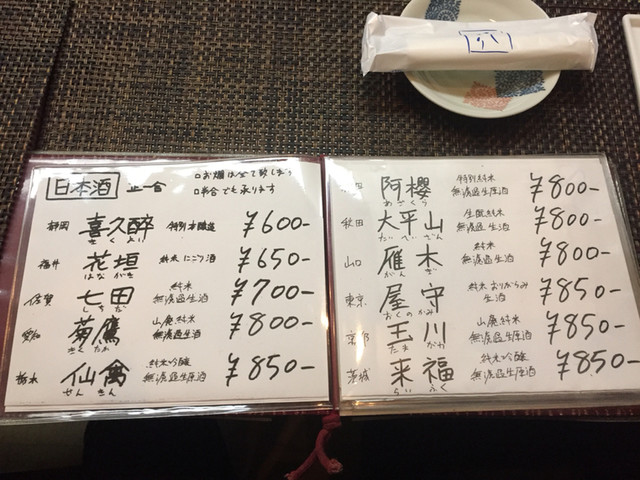 日本酒 正一合
□お燗は全て致します
□半合でも承ります
静岡 喜久醉 特別本醸造 ¥600-
きくよい
福井 花垣 純米にごり酒 ¥650-
はながき
佐賀 七田 純米 無濾過生酒 ¥700-
しちだ
愛知 菊鷹 山廃純米 無濾過生酒 ¥800-
きくたか
栃木 仙禽 純米吟醸 無濾過生原酒 ¥850-
せんきん
田 阿櫻 特別純米 無濾過生原酒 ¥800-
あざくら
秋田 大平山 生酛純米 無濾過生酒 ¥800-
たいへいざん
山口 雁木 純米 無濾過生原酒 ¥800-
がんぎ
東京 屋守 純米おりがらみ 生酒 ¥850-
おくのかみ
京都 玉川 山廃純米 無濾過生原酒 ¥850-
たまがわ
茨城 来福 純米吟醸 無濾過生原酒 ¥850-
らいふく